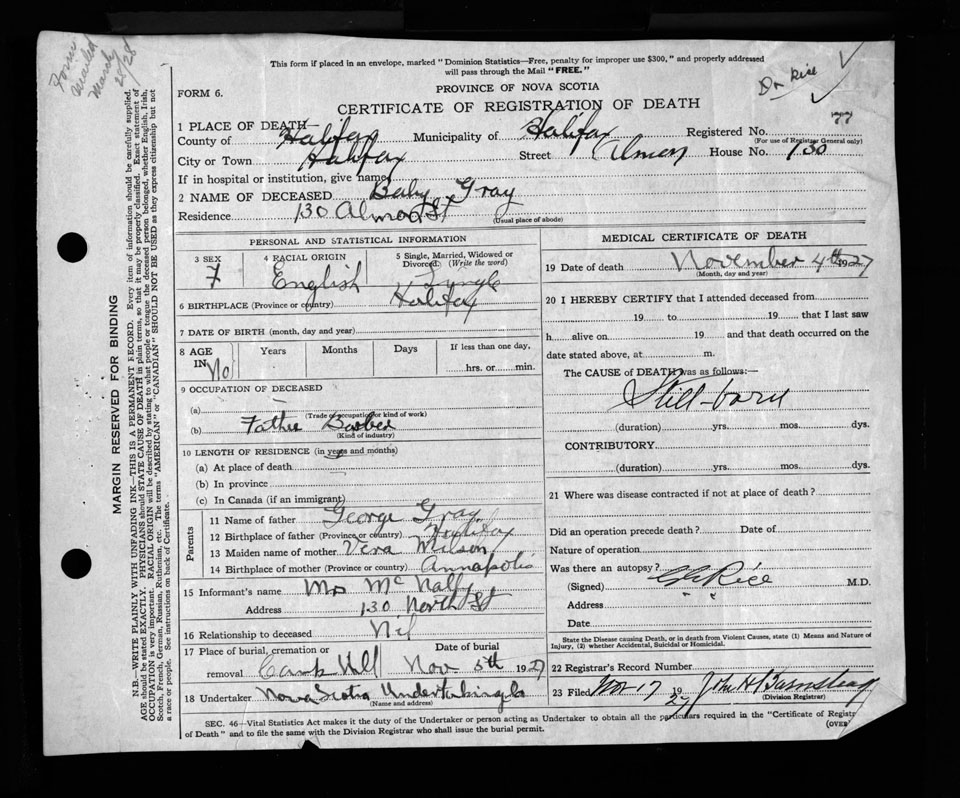 Form
Mailed
March
28/28
Dr Rice
This form if placed in an envelope, marked "Dominion Statistics—Free, penalty for improper use $300," and properly addressed
will pass through the Mail "FREE."
FORM 6.
PROVINCE OF NOVA SCOTIA
CERTIFICATE OF REGISTRATION OF DEATH
1 PLACE OF DEATH—
County of Halifax Municipality of Halifax Registered No.
(For use of Registrar General only)
City or Town Halifax Street Almon House No. 130
If in hospital or institution, give name
2 NAME OF DECEASED Baby Gray
Residence 130 Almon St
(Usual place of abode)
PERSONAL AND STATISTICAL INFORMATION
3 SEX 4 RACIAL ORIGIN 5 Single, Married, Widowed or Divorced. (Write the word)
F English Single
6 BIRTHPLACE (Province or country) Halifax
7 DATE OF BIRTH (month, day and year)
8 AGE IN Years Months Days If less than one day,
No hrs. or min.
9 OCCUPATION OF DECEASED
(a)
(Trade or occupation or kind of work)
(b) Father Barber
(Kind of industry)
10 LENGTH OF RESIDENCE (in years and months)
(a) At place of death
(b) In province
(c) In Canada (if an immigrant)
Parents
11 Name of father George Gray
12 Birthplace of father (Province or country) Halifax
13 Maiden name of mother Vera Wilson
14 Birthplace of mother (Province or country) Annapolis
15 Informant's name Mrs McNally
Address 130 North St
16 Relationship to deceased Nil
17 Place of burial, cremation or removal Date of burial
Camp Hill Nov 5th 1927
18 Undertaker Nova Scotia Undertaking Co
(Name and address)
MEDICAL CERTIFICATE OF DEATH
19 Date of death November 4th 1927
(Month, day and year)
20 I HEREBY CERTIFY that I attended deceased from
19 to 19 that I last saw
h alive on 19 and that death occurred on the
date stated above, at m.
The CAUSE of DEATH was as follows:—
Still-born
(duration) yrs. mos. dys.
CONTRIBUTORY.
(duration) yrs. mos. dys.
21 Where was disease contracted if not at place of death?
Did an operation precede death? Date of
Nature of operation
Was there an autopsy?
(Signed) Rice M.D.
Address
Date
State the Disease causing Death, or in death from Violent Causes, state (1) Means and Nature of
Injury, (2) whether Accidental, Suicidal or Homicidal.
22 Registrar's Record Number
23 Filed Nov 17 1927 John H Barnstead
(Division Registrar)
SEC. 46—Vital Statistics Act makes it the duty of the Undertaker or person acting as Undertaker to obtain all the particulars required in the "Certificate of Registr
of Death" and to file the same with the Division Registrar who shall issue the burial permit.
(OVER)
MARGIN RESERVED FOR BINDING
N.B.—WRITE PLAINLY WITH UNFADING INK—THIS IS A PERMANENT RECORD. Every item of information should be carefully supplied.
AGE should be stated EXACTLY. PHYSICIANS should STATE CAUSE OF DEATH in plain terms, so that it may be properly classified. Exact statement of
OCCUPATION is very important. RACIAL ORIGIN will be described by stating to what people or tongue the deceased person belonged, whether English, Irish,
Scotch, French, German, Russian, Ruthenian, etc. The terms "AMERICAN" or "CANADIAN" SHOULD NOT BE USED as they express citizenship but not
a race or people. See instructions on back of Certificate.